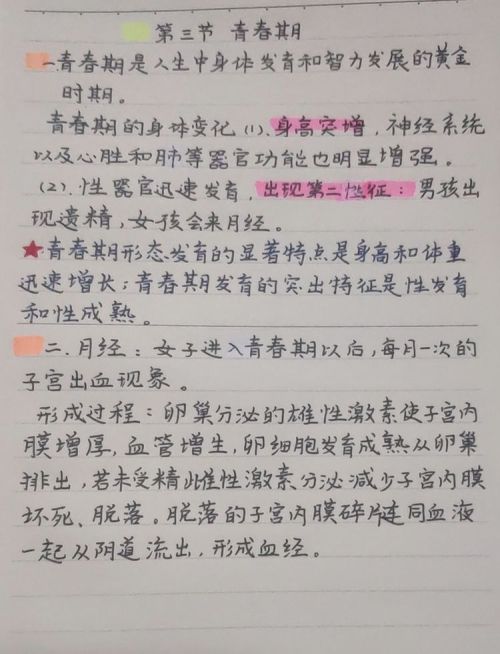 第三节 青春期
一.青春期是人生中身体发育和智力发展的黄金
时期。
青春期的身体变化(1).身高突增,神经系统
以及心脏和肺等器官功能也明显增强。
(2).性器官迅速发育,出现第二性征:男孩出
现遗精,女孩会来月经。
★青春期形态发育的显著特点是身高和体重
迅速增长;青春期发育的突出特征是性发育
和性成熟。
二.月经:女子进入青春期以后,每月一次的
子宫出血现象。
形成过程:卵巢分泌的雄性激素使子宫内
膜增厚,血管增生,卵细胞发育成熟从卵巢
排出,若未受精雌性激素分泌减少子宫内膜
坏死、脱落。脱落的子宫内膜碎片连同血液
一起从阴道流出,形成血经。